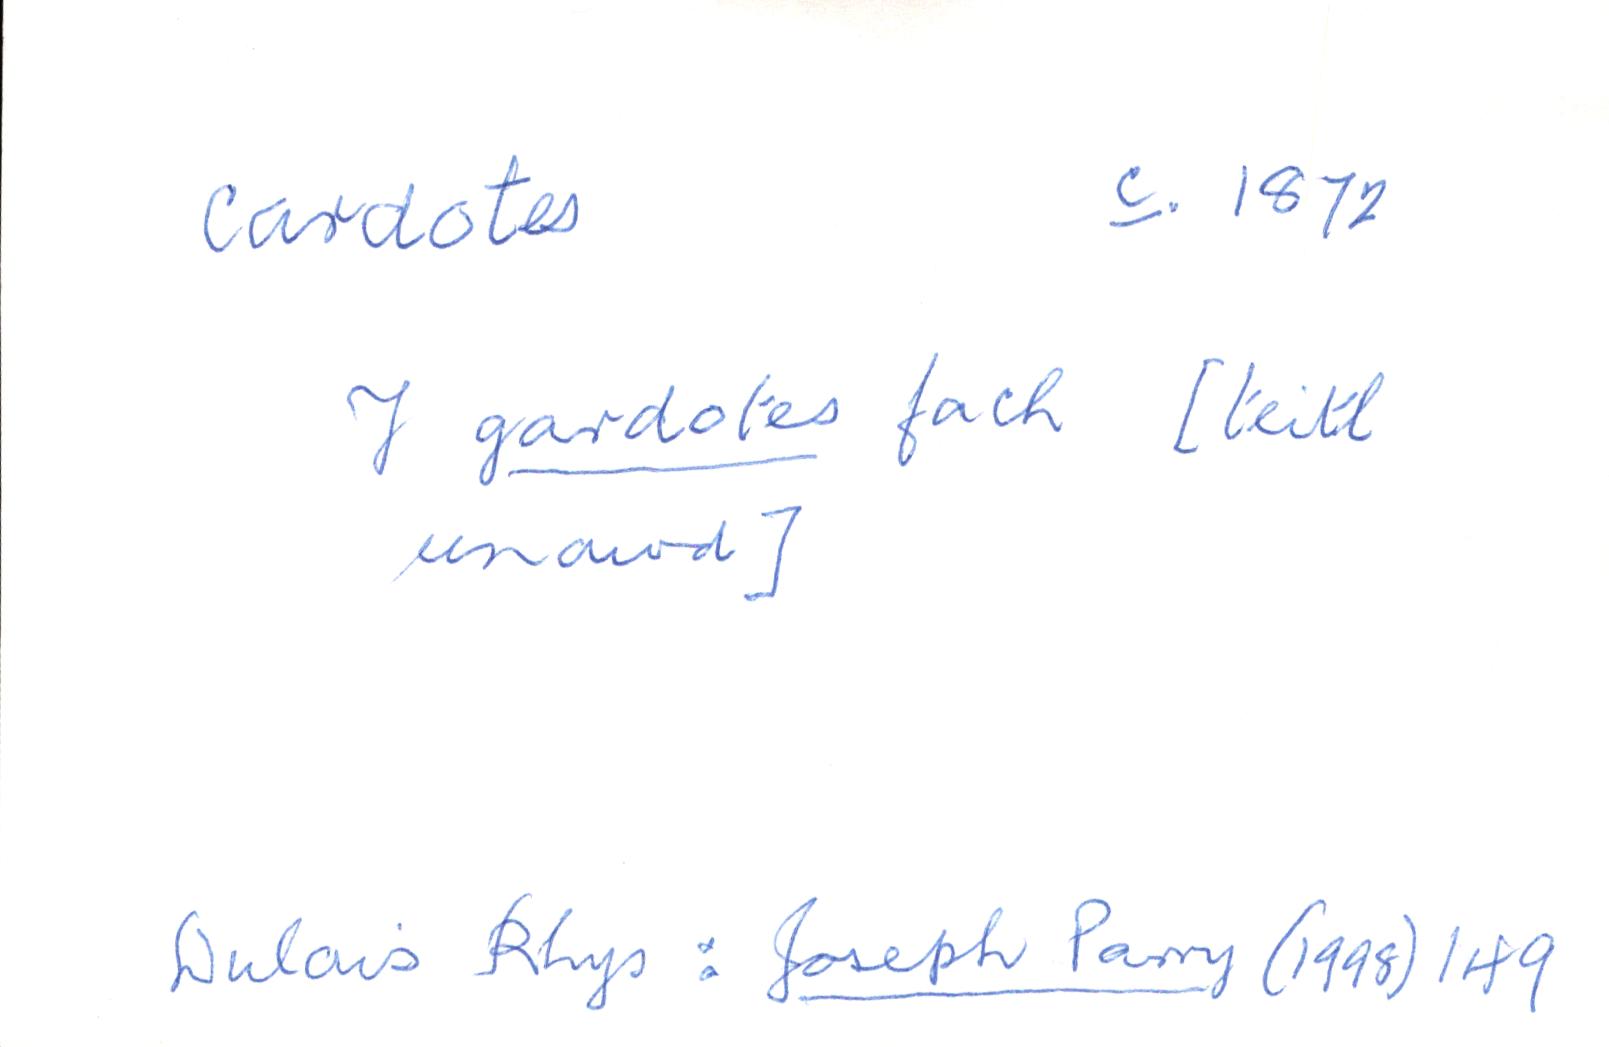 Cardotes c. 1872
Y gardotes fach [teitl
unawd]
Dulais Rhys : Joseph Parry (1998) 149